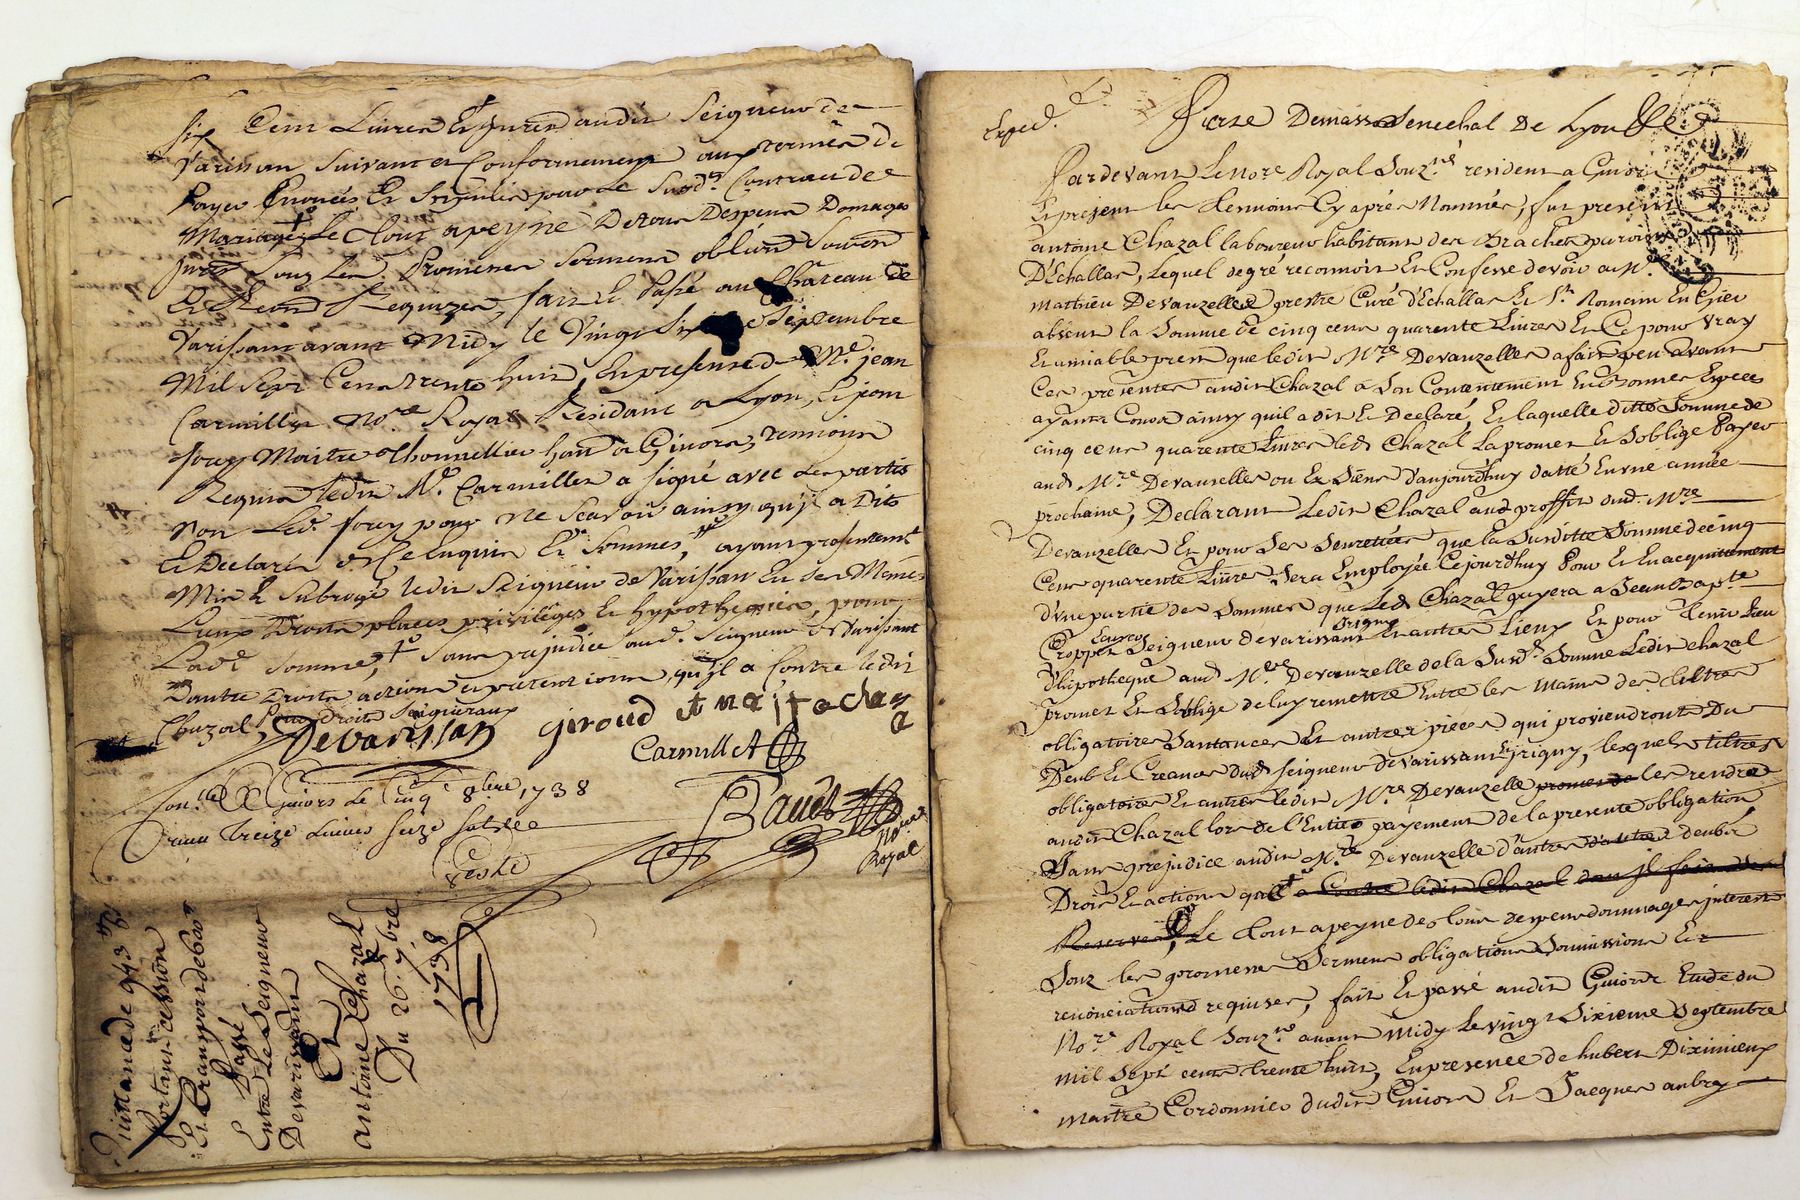 six Cent Livres Et Juree audit Seigneur de
Varissan Suivant et Conformement aux termes de
Payer Enoncés Et Stipulés pour Le Susd. Contract de
Mariage, Le tout a peyne De tous Despens Domages
Sous Les Promesses Serment oblion Soumon
Et Renon Requizes, fait Et Passé au Château de
Varissan avant Midy le Vingt Six Septembre
Mil Sept Cent trente huit, En presence de Me. jean
Carmillet no.re Royal Residant a Lyon, Et jean
jouy Maitre thonnellier hant a Givors, temoins
Requis ledit Me. Carmillet a signé avec Les partis
non Led. jouy pour ne Scavoir ainsy qu'il a Dit
Et Declaré de Ce Enquis Et Sommés, ayant presentemt
Mis Et Subrogé ledit Seigneur de Varissan En Ses Mêmes
Lieux Droits places privileges Et hypotheques, pour
Lad.e Somme, Sans prejudice aud. Seigneur de Varissant
Dautre Droits actions et pretentions qu'il a Contre ledit
Chazal, Pour droits Seigneuraux
Devarissan
giroud
Carmillet
Baudt
Notaire
Royal
Con.lé A Givors Le Cinq 8bre 1738
Reçu treize Livres Seize Sols
Quittance de 943
Portant cession
Et transport de
Passé
Entre Le Seigneur
Devarissant
Et
antoine Chazal
Du 26. 7bre
1738
Exped.
Pierre Demasso Senechal De Lyon &c
Pardevant Le No.re Royal Souz.né resident a Givors
Et present les temoins Cy aprés Nommés, fut present
antoine Chazal laboureur habitant des Braches paroisse
D'Echallas, Lequel de gré reconnoit Et Confesse devoir a Mr.
mathieu Devauzelles prestre Curé d'Echallas Et St. Romain En Gier
absent la Somme de cinq cent quarente Livres Et Ce pour vray
Et amiable prest que ledit Mre Devauzelles a fait peu avant
Ces presentes audit Chazal a Son Contentement En bonnes Especes
ayants Cours ainsy qu'il a dit Et Declaré, Et laquelle ditte Somme de
cinq cent quarente Livres led. Chazal La promet Et S'oblige Payer
aud. Mre. Devauzelles ou Ez Siens d'aujourdhuy datté En une année
prochaine, Declarant Ledit Chazal aud proffit dud. Mre
Devauzelles Et pour Ses Seuretées que la Susditte Somme de cinq
Cent quarente Livres Sera Employée Cejourdhuy Pour Et En acquittement
d'une partie des Sommes que Led. Chazal payera a Jean Bapte
Croppet Seigneur de varissant Et autres Lieux Et pour tenir Lieu
d'hipotheque aud. Mre. Devauzelle de la Susd. Somme Ledit chazal
promet Et S'oblige de luy remettre Entre les Mains des tiltres
obligatoires Santances Et autres pieces qui proviendronts Du
Deub Et Creance dud. Seigneur de varissant Irigny, lesquels tiltres
obligatoires Et autres ledit Mre Devauzelle promet de les rendre
audit Chazal lors de l'Entier payement de la presente obligation,
Sans prejudice audit Mre. Devauzelle d'autres deubs
Droit Et actions qu'il a Contre ledit Chazal dans il fait des
Reserves, Le tout a peyne de tous depens dommages interests
Souz les promesses Serment obligations Soumissions Et
renonciations requises, fait Et passé audit Givors Etude du
No.re Royal Souz.né avant Midy Le vingt Sixieme Septembre
mil Sept cents trente huit, En presence de hubert Diximieux
maitre Cordonnier dudit Givors Et Jacques aubry